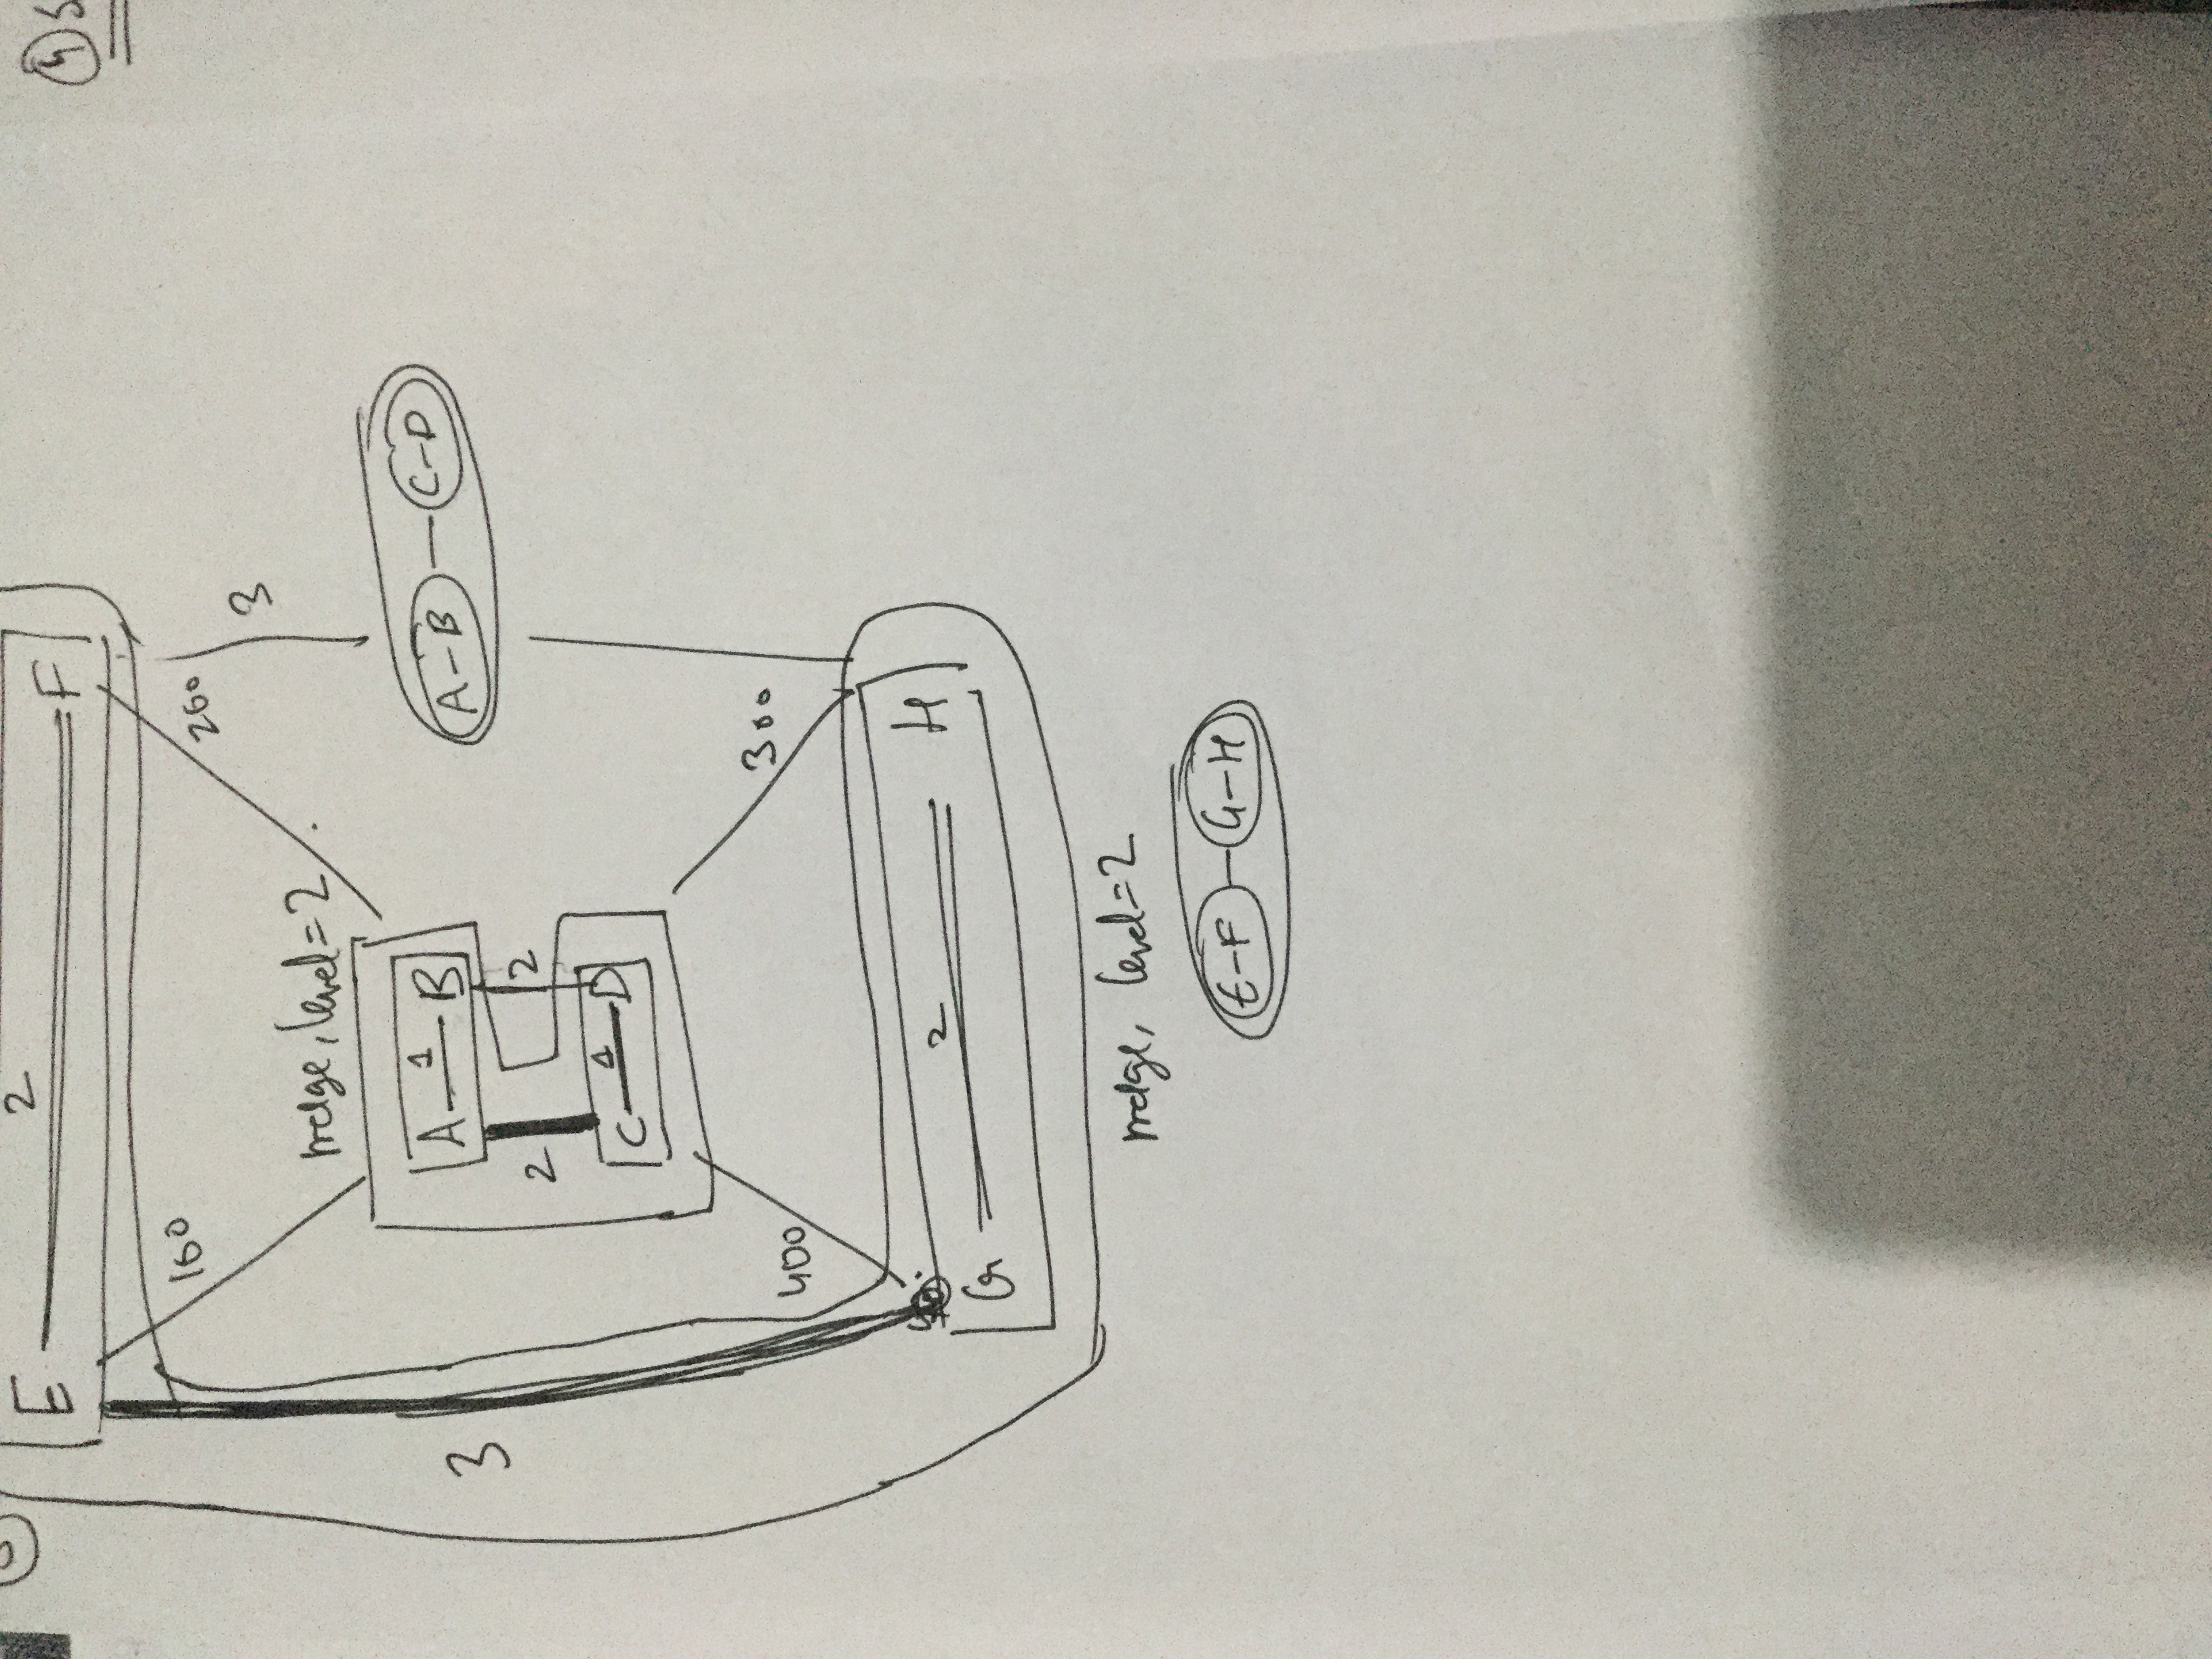 2
E F
④ S
160 260
3
merge, level=2
A 1 B
A-B C-D
3
2 2
C 1 D
300
400
2 H
G
merge, level=2
E-F G-H